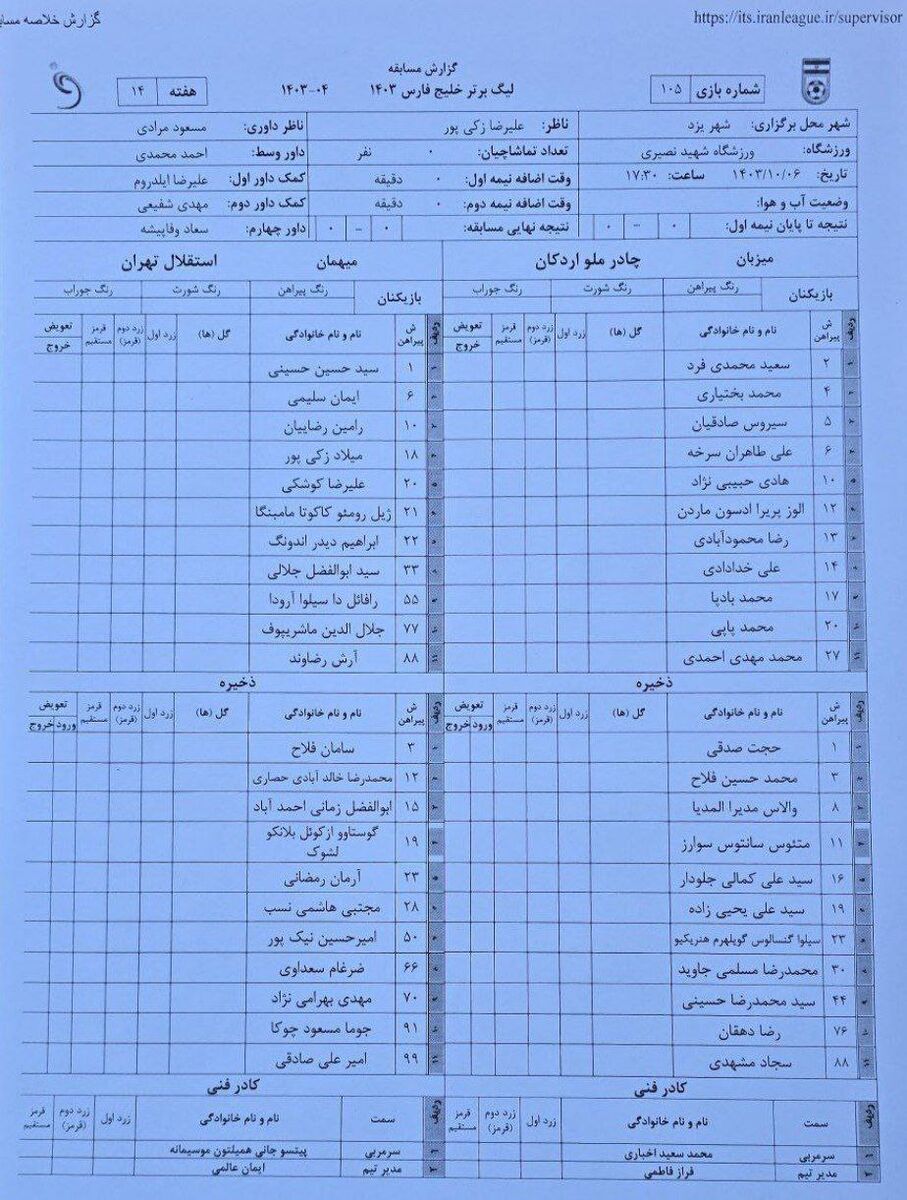 گزارش خلاصه
https://its.iranleague.ir/supervisor
گزارش مسابقه
شماره بازی ۱۰۵
لیگ برتر خلیج فارس ۱۴۰۳ ۱۴۰۳-۰۴
هفته ۱۴
شهر محل برگزاری: شهر یزد
ناظر: علیرضا زکی پور
ناظر داوری: مسعود مرادی
ورزشگاه: ورزشگاه شهید نصیری
تعداد تماشاچیان: ۰ نفر
داور وسط: احمد محمدی
تاریخ: ۱۴۰۳/۱۰/۰۶ ساعت: ۱۷:۳۰
وقت اضافه نیمه اول: ۰ دقیقه
کمک داور اول: علیرضا ایلدروم
وضعیت آب و هوا:
وقت اضافه نیمه دوم: ۰ دقیقه
کمک داور دوم: مهدی شفیعی
نتیجه تا پایان نیمه اول: ۰ - ۰
نتیجه نهایی مسابقه: ۰ - ۰
داور چهارم: سعاد وفاپیشه
میزبان چادر ملو اردکان
بازیکنان رنگ پیراهن رنگ شورت رنگ جوراب
ردیف ش پیراهن نام و نام خانوادگی گل (ها) زرد اول زرد دوم (قرمز) قرمز مستقیم تعویض خروج
۲ سعید محمدی فرد
۴ محمد بختیاری
۵ سیروس صادقیان
۶ علی طاهران سرخه
۱۰ هادی حبیبی نژاد
۱۲ الوز پریرا ادسون ماردن
۱۳ رضا محمودآبادی
۱۴ علی خدادادی
۱۷ محمد بادپا
۲۰ محمد پاپی
۲۷ محمد مهدی احمدی
ذخیره
ردیف ش پیراهن نام و نام خانوادگی گل (ها) زرد اول زرد دوم (قرمز) قرمز مستقیم تعویض ورود خروج
۱ حجت صدقی
۳ محمد حسین فلاح
۸ والاس مدیرا المدیا
۱۱ متئوس سانتوس سوارز
۱۶ سید علی کمالی جلودار
۱۹ سید علی یحیی زاده
۲۳ سیلوا گنسالوس گویلهرم هنریکیو
۳۰ محمدرضا مسلمی جاوید
۴۴ سید محمدرضا حسینی
۷۶ رضا دهقان
۸۸ سجاد مشهدی
کادر فنی
ردیف سمت نام و نام خانوادگی زرد اول زرد دوم (قرمز) قرمز مستقیم
۱ سرمربی محمد سعید اخباری
۲ مدیر تیم فراز فاطمی
میهمان استقلال تهران
بازیکنان رنگ پیراهن رنگ شورت رنگ جوراب
ردیف ش پیراهن نام و نام خانوادگی گل (ها) زرد اول زرد دوم (قرمز) قرمز مستقیم تعویض خروج
۱ سید حسین حسینی
۶ ایمان سلیمی
۱۰ رامین رضاییان
۱۸ میلاد زکی پور
۲۰ علیرضا کوشکی
۲۱ ژیل رومئو کاکوتا مامبنگا
۲۲ ابراهیم دیدر اندونگ
۳۳ سید ابوالفضل جلالی
۵۵ رافائل دا سیلوا آرودا
۷۷ جلال الدین ماشریپوف
۸۸ آرش رضاوند
ذخیره
ردیف ش پیراهن نام و نام خانوادگی گل (ها) زرد اول زرد دوم (قرمز) قرمز مستقیم تعویض ورود خروج
۳ سامان فلاح
۱۲ محمدرضا خالد آبادی حصاری
۱۵ ابوالفضل زمانی احمد آباد
۱۹ گوستاوو ازکوئل بلانکو
لشوک
۲۳ آرمان رمضانی
۲۸ مجتبی هاشمی نسب
۵۰ امیرحسین نیک پور
۶۶ ضرغام سعداوی
۷۰ مهدی بهرامی نژاد
۹۱ جوما مسعود چوکا
۹۹ امیر علی صادقی
کادر فنی
ردیف سمت نام و نام خانوادگی زرد اول زرد دوم (قرمز) قرمز مستقیم
۱ سرمربی پیتسو جانی همیلتون موسیمانه
۲ مدیر تیم ایمان عالمی